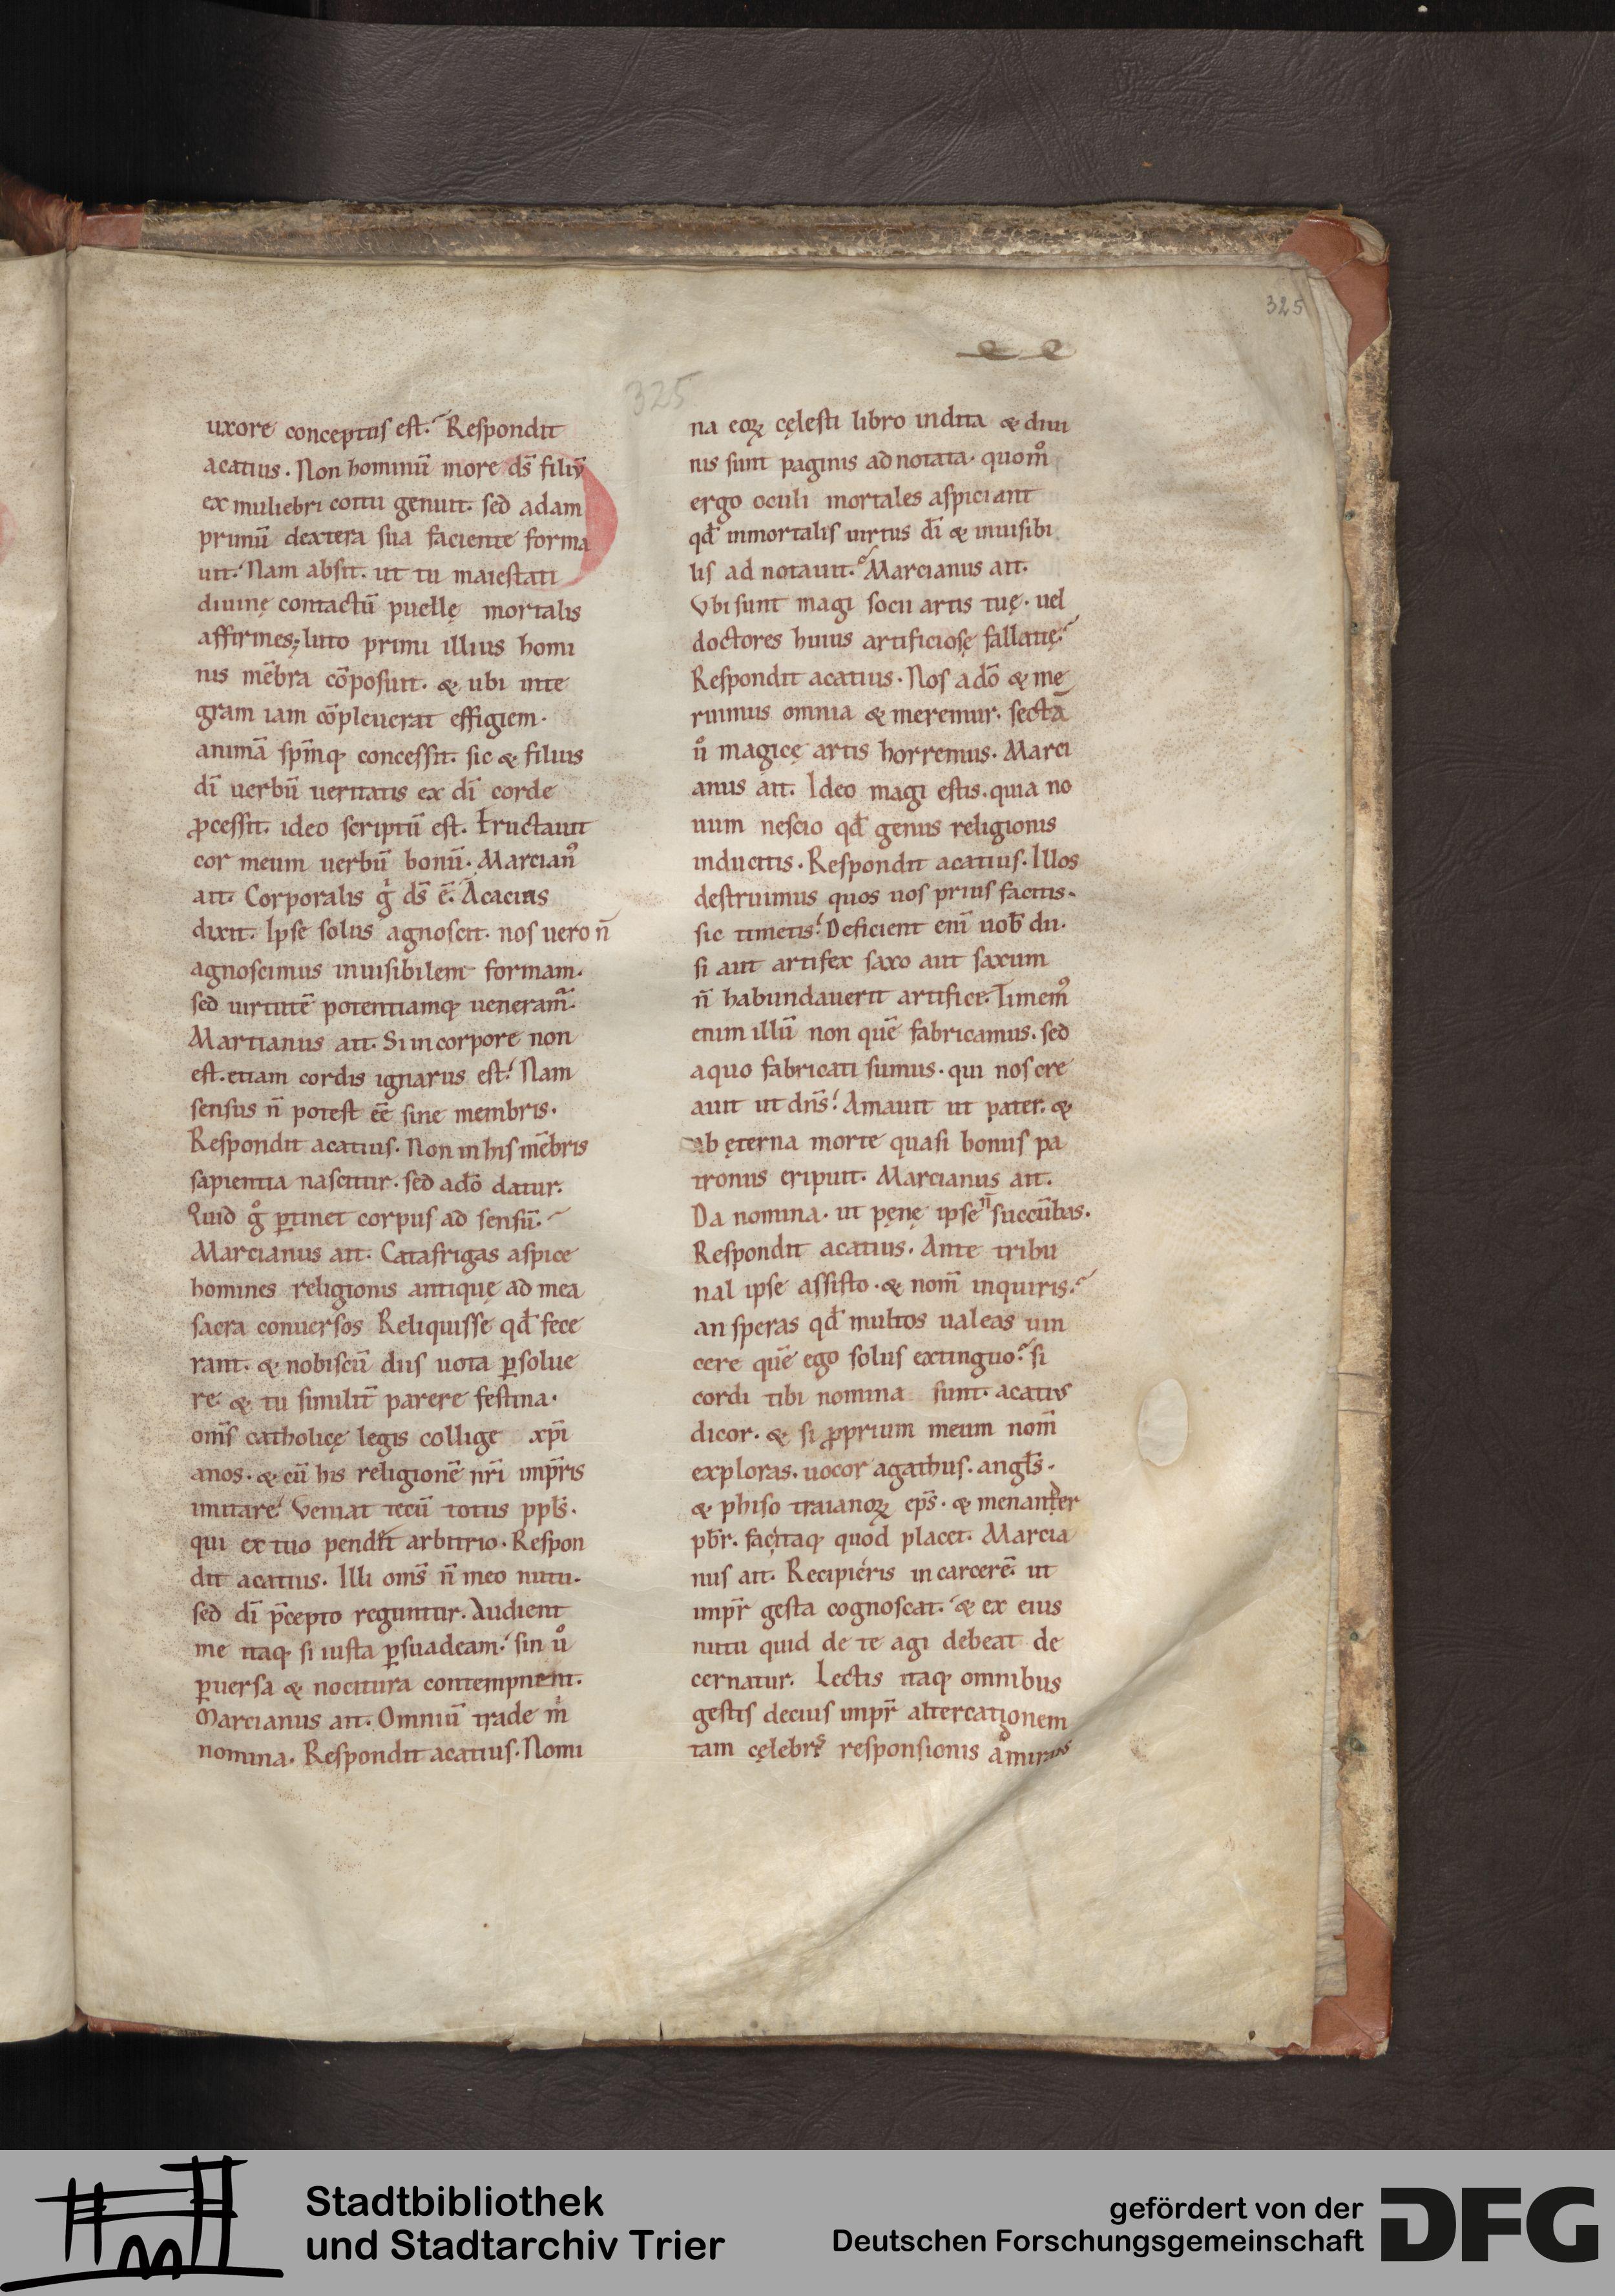 325
325
uxore conceptus est. Respondit
acatius. Non hominū more ds̄ filiū
ex muliebri coitu genuit. sed adam
primū dextera sua faciente forma
uit. Nam absit. ut tu maiestati
diuinę contactū puellę mortalis
affirmes; luto primi illius homi
nis mēbra cōposuit. & ubi inte
gram iam cōpleuerat effigiem.
animā spm̄q; concessit. sic & filius
dī uerbū ueritatis ex dī corde
ꝓcessit. ideo scriptū est. Eructauit
cor meum uerbū bonū. Marcianꝰ
ait. Corporalis gͦ ds̄ ē. Acacius
dixit. Ipse solus agnoscit. nos uero n̄
agnoscimus inuisibilem formam.
sed uirtutē potentiamq; ueneram̄.
Martianus ait. Si in corpore non
est. etiam cordis ignarus est. Nam
sensus n̄ potest eē sine membris.
Respondit acatius. Non in his mēbris
sapientia nascitur. sed adō datur.
Quid gͦ ꝑtinet corpus ad sensū.
Marcianus ait. Catafrigas aspice
homines religionis antiquę ad mea
sacra conuersos Reliquisse qd̄ fece
rant. & nobiscū diis uota ꝑsolue
re. & tu similit̄ parere festina.
om̄s catholicę legis collige xp̄i
anos. & cū his religionē nr̄i imp̄ris
imitare. Veniat tecū totus ppl̄s.
qui ex tuo pendit arbitrio. Respon
dit acatius. Illi om̄s n̄ meo nutu.
sed dī p̄cepto reguntur. Audient
me itaq; si iusta ꝑsuadeam. sin uͦ
ꝑuersa & nocitura contempnent.
Marcianus ait. Omniū trade m̍
nomina. Respondit acatius. Nomi
na eoꝝ cęlesti libro indita & diui
nis sunt paginis adnotata. quom̊
ergo oculi mortales aspiciant
qd̄ inmortalis uirtus dī & inuisibi
lis ad notauit. Marcianus ait.
Vbi sunt magi socii artis tuę. uel
doctores huius artificiosę fallatię.
Respondit acatius. Nos a dō & me
ruimus omnia & meremur. sectā
uͦ magicę artis horremus. Marci
anus ait. Ideo magi estis. quia no
uum nescio qd̄ genus religionis
inducitis. Respondit acatius. Illos
destruimus quos uos prius facitis.
sic timetis. Deficient enī uob̄ dii.
si aut artifex saxo aut saxum
n̄ habundauerit artifice. Timemꝰ
enim illū non quē fabricamus. sed
aquo fabricati sumus. qui nos cre
auit ut dn̄s. Amauit ut pater. &
ab ęterna morte quasi bonus pa
tronus eripuit. Marcianus ait.
Da nomina. ut pęnę ipse n̄ succūbas.
Respondit acatius. Ante tribu
nal ipse assisto. & nom̄ inquiris.
an speras qd̄ multos ualeas uin
cere quē ego solus extinguo. si
cordi tibi nomina sunt. acatius
dicor. & si ꝓprium meum nom̄
exploras. uocor agathus. angl̄s.
& phiso traianoꝝ ep̄s. & menander
pb̄r. fac itaq; quod placet. Marcia
nus ait. Recipieris in carcerē. ut
imp̄r gesta cognoscat. & ex eius
nutu quid de te agi debeat de
cernatur. Lectis itaq; omnibus
gestis decius imp̄r altercationem
tam cęlebris responsionis admiratus
Stadtbibliothek
und Stadtarchiv Trier
gefördert von der
Deutschen Forschungsgemeinschaft
DFG